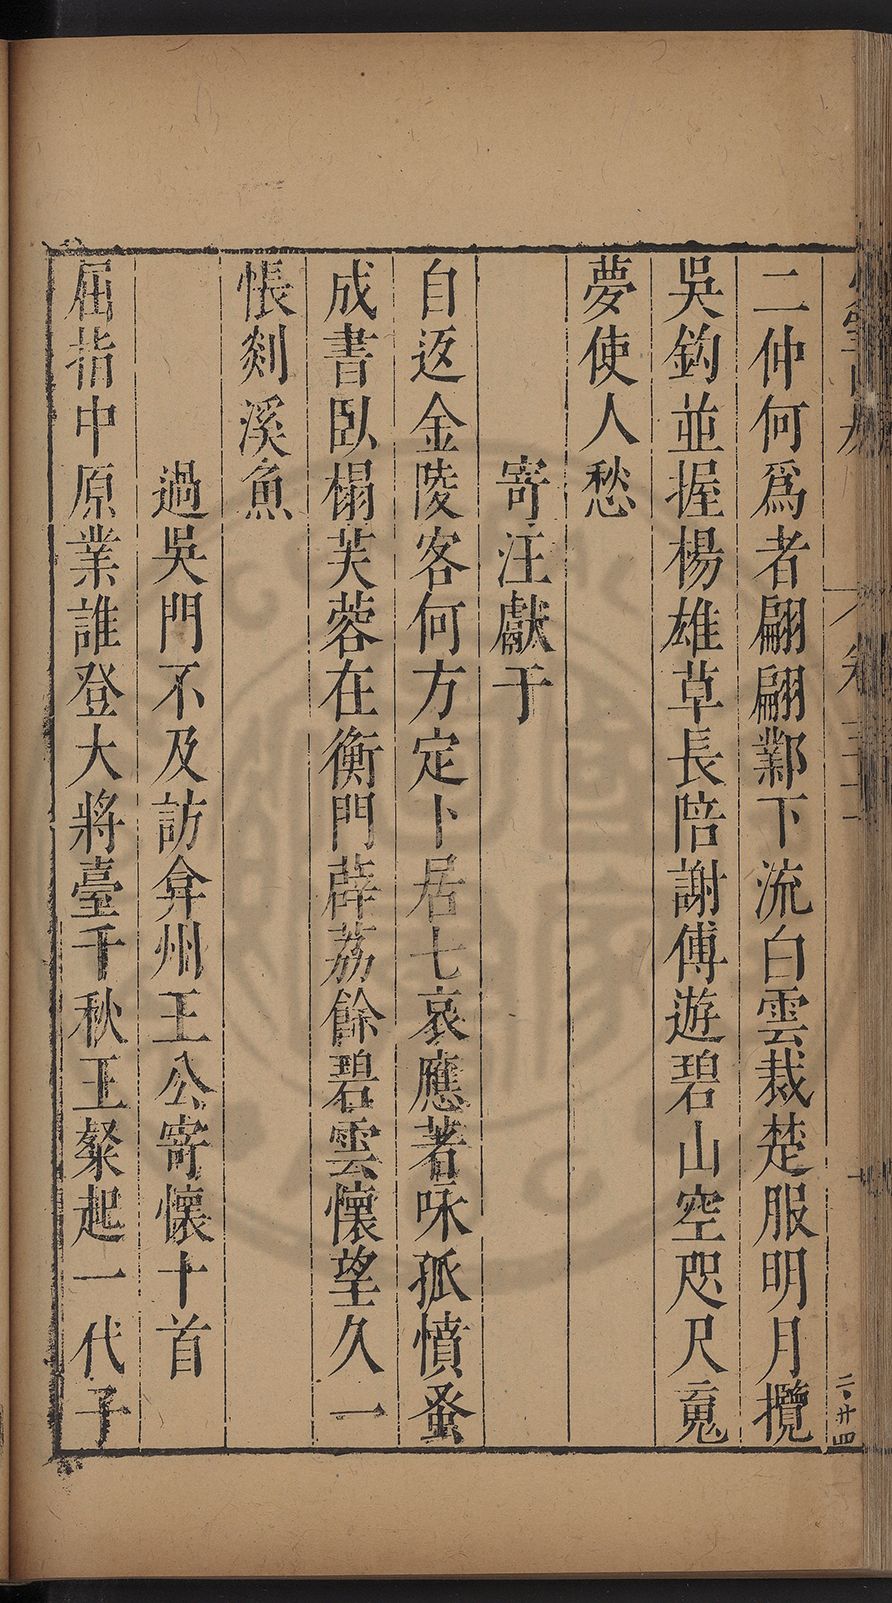 二仲何爲者翩翩鄴下流白雲裁楚服明月攬
吳鈎並握楊雄草長陪謝傅遊碧山空咫尺䰟
夢使人愁
寄汪獻于
自返金陵客何方定卜居七哀應著咏孤憤蚤
成書臥榻芙蓉在衡門薜荔餘碧雲懷望久一
悵剡溪魚
過吳門不及訪弇州王公寄懷十首
屈指中原業誰登大將臺千秋王粲起一代子